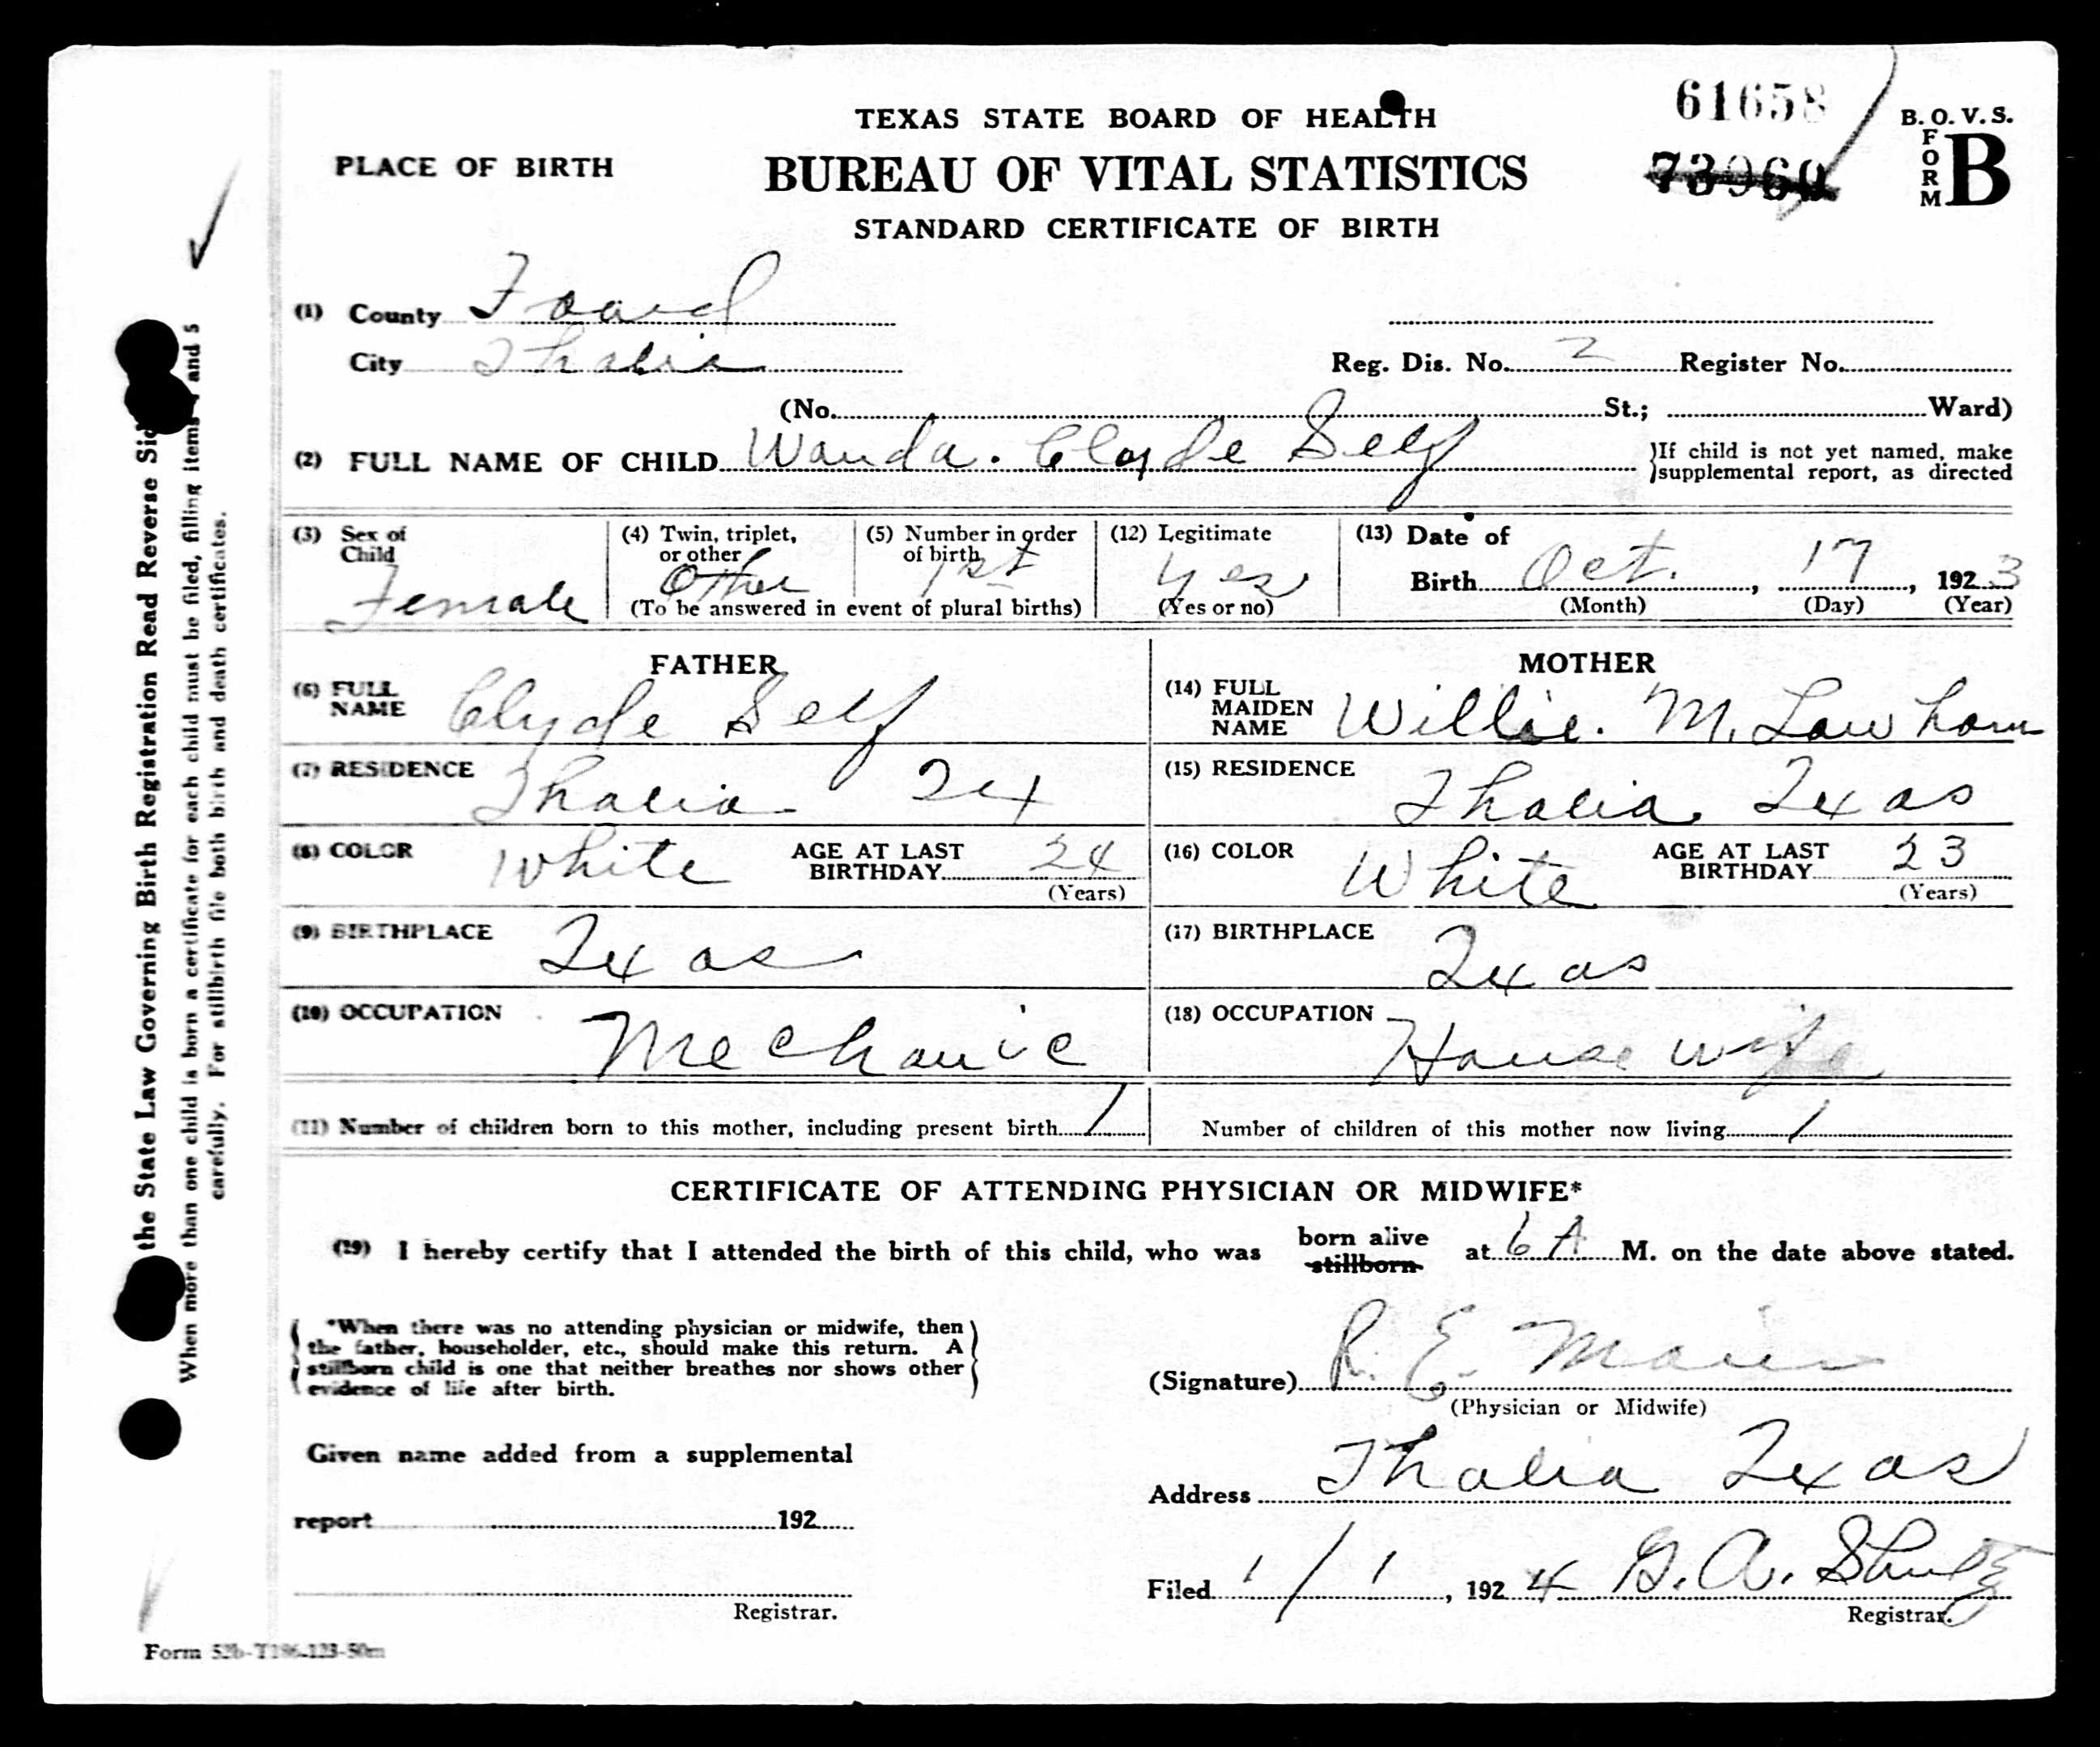 TEXAS STATE BOARD OF HEALTH
61658
B. O. V. S.
FORM B
PLACE OF BIRTH
BUREAU OF VITAL STATISTICS
73960
STANDARD CERTIFICATE OF BIRTH
(1) County Foard
City Thalia
Reg. Dis. No. 2 Register No.
(No. St.; Ward)
(2) FULL NAME OF CHILD Wanda. Clyde Self
If child is not yet named, make
supplemental report, as directed
(3) Sex of Child Female
(4) Twin, triplet, or other Other
(5) Number in order of birth 1st
(To be answered in event of plural births)
(12) Legitimate yes
(Yes or no)
(13) Date of
Birth Oct. , 17 , 1923
(Month) (Day) (Year)
FATHER
(6) FULL NAME Clyde Self
(7) RESIDENCE Thalia Tex
(8) COLOR White AGE AT LAST BIRTHDAY 24
(Years)
(9) BIRTHPLACE Texas
(10) OCCUPATION Mechanic
MOTHER
(14) FULL MAIDEN NAME Willie. M. Lawhorn
(15) RESIDENCE Thalia, Texas
(16) COLOR White AGE AT LAST BIRTHDAY 23
(Years)
(17) BIRTHPLACE Texas
(18) OCCUPATION House wife
(11) Number of children born to this mother, including present birth 1
Number of children of this mother now living 1
CERTIFICATE OF ATTENDING PHYSICIAN OR MIDWIFE*
(19) I hereby certify that I attended the birth of this child, who was born alive stillborn at 6 A M. on the date above stated.
*When there was no attending physician or midwife, then
the father, householder, etc., should make this return. A
stillborn child is one that neither breathes nor shows other
evidence of life after birth.
(Signature) R. E. Main
(Physician or Midwife)
Given name added from a supplemental
report 192
Registrar.
Address Thalia Texas
Filed 1/1, 1924 G. A. Shultz
Registrar.
Form 52b-T196-123-50m
the State Law Governing Birth Registration Read Reverse Side
When more than one child is born a certificate for each child must be filed, filling items and 5
carefully. For stillbirth file both birth and death certificates.